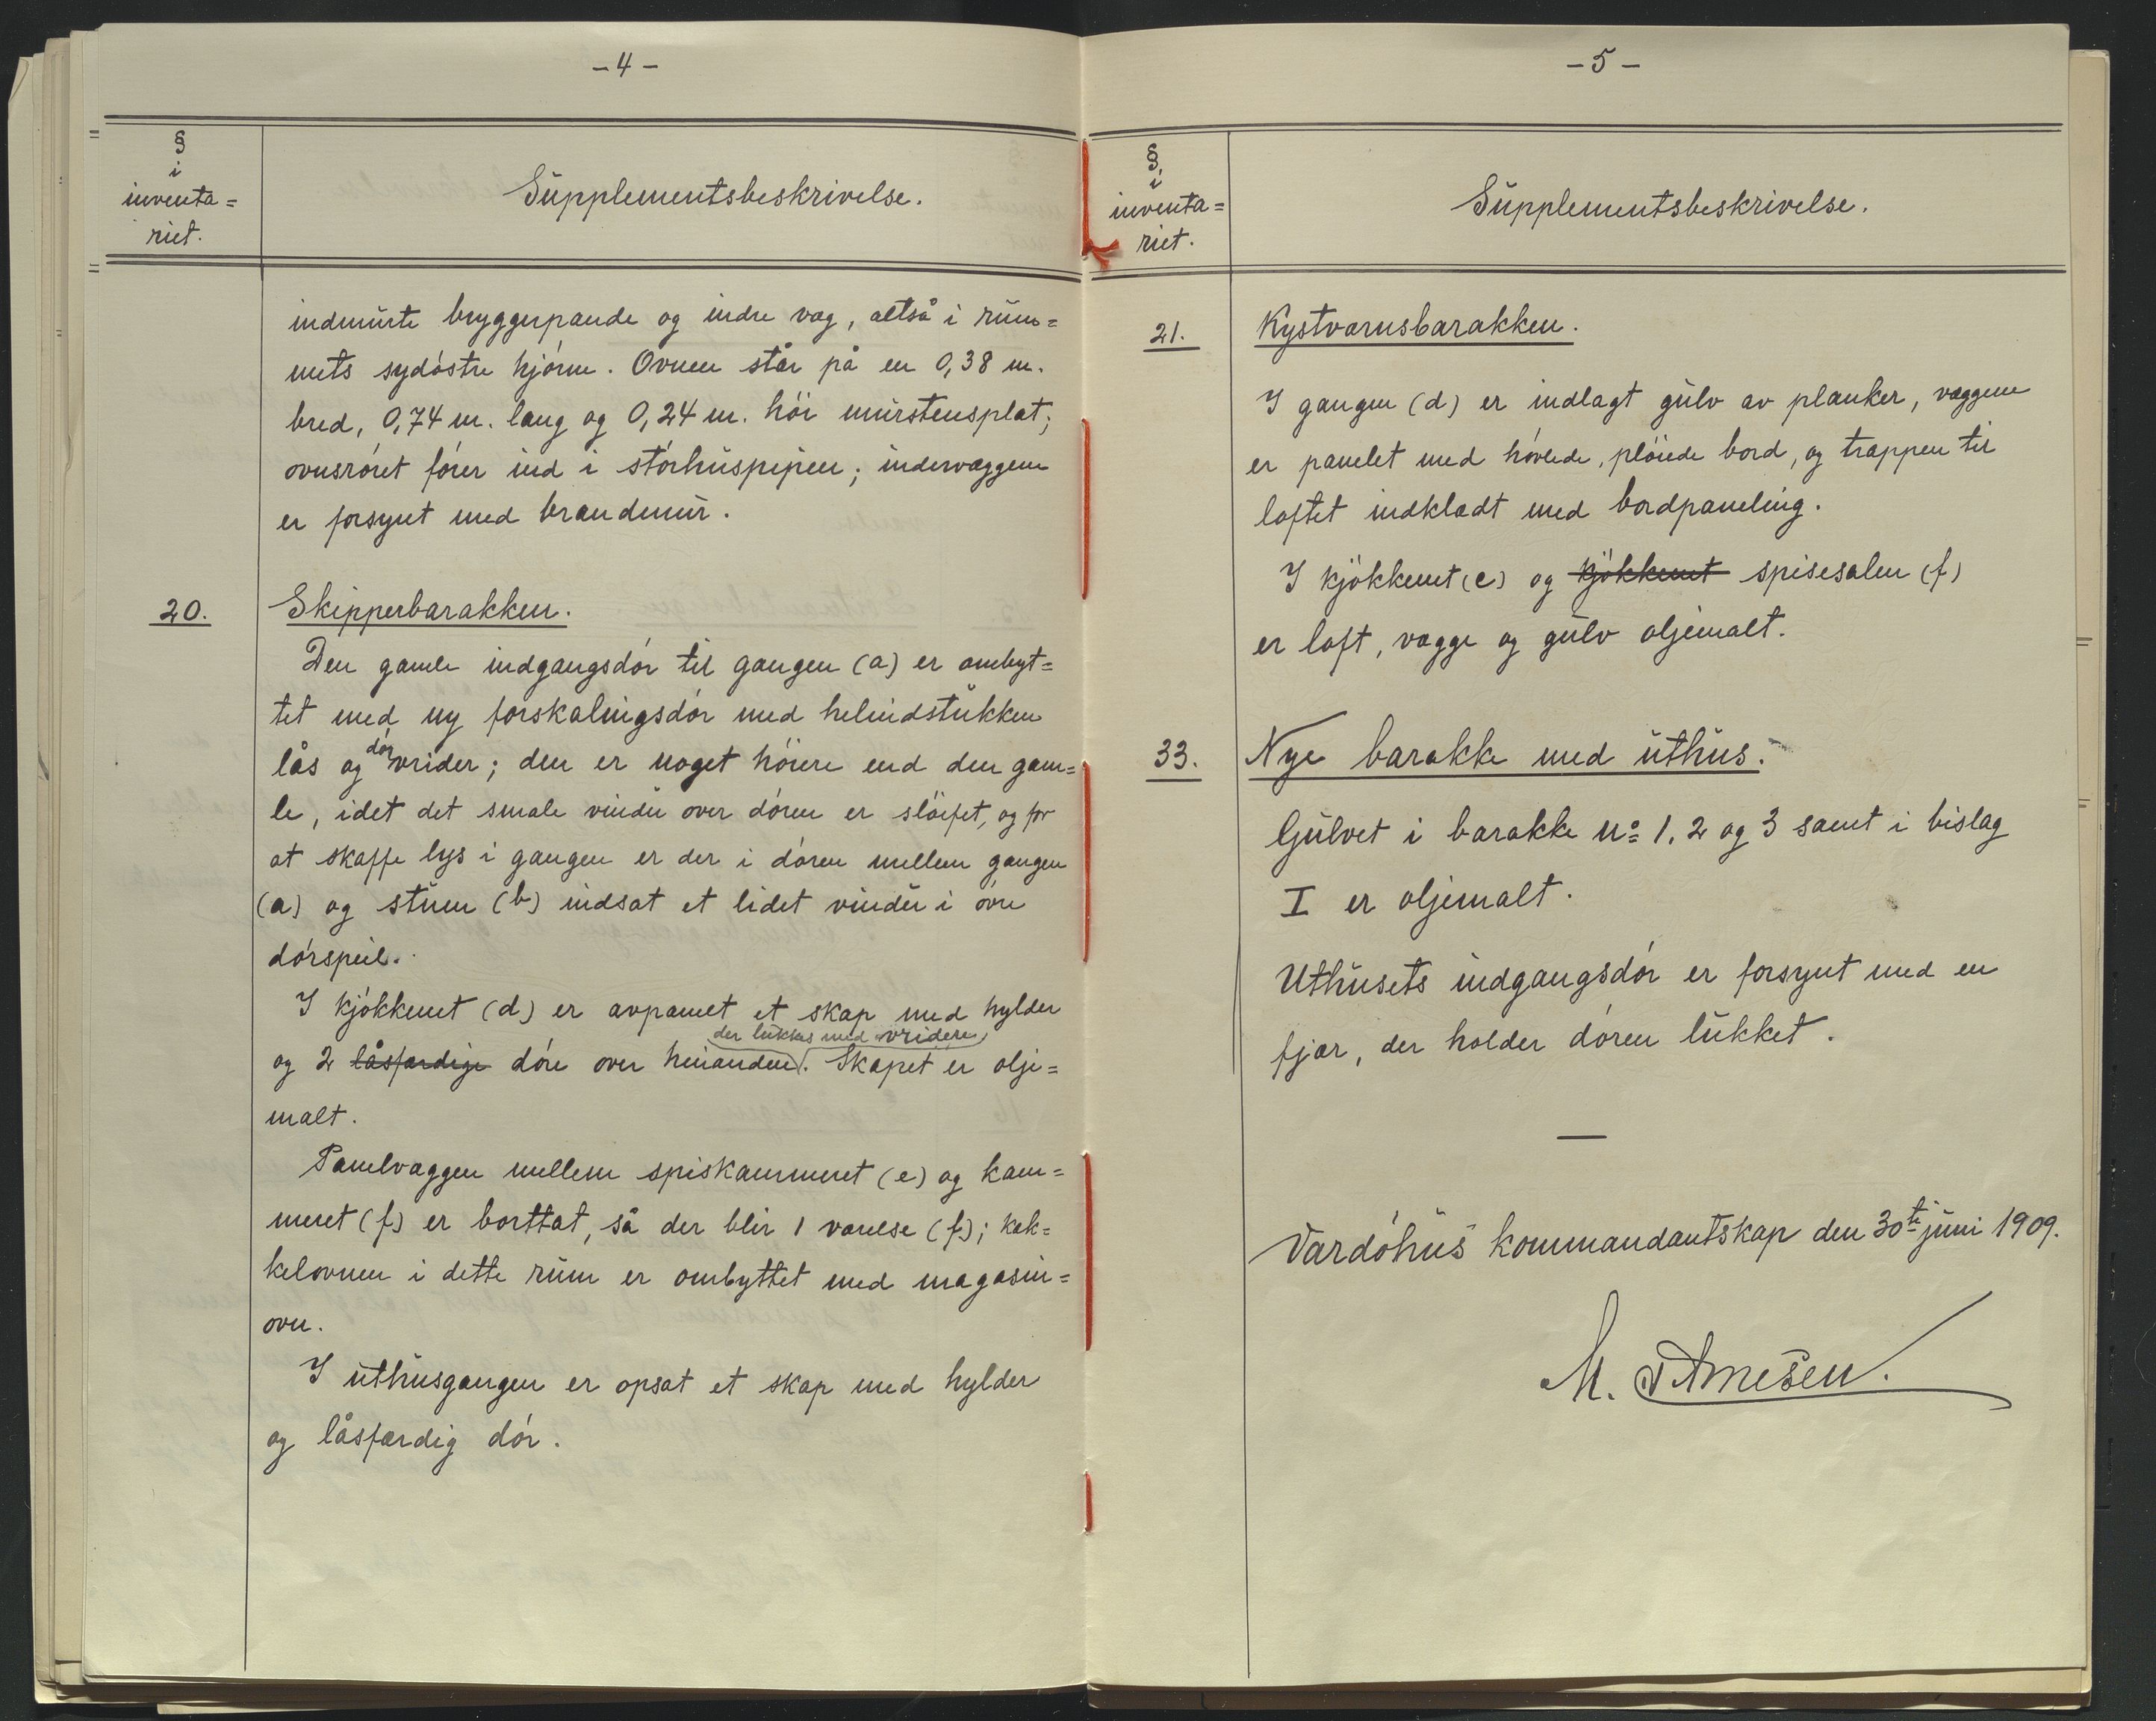 - 4 -
§
i
inventa=
riet.
Supplementsbeskrivelse.
indmurte bryggerpande og indre væg, altså i rum=
mets sydöstre hjörne. Ovnen står på en 0,38 m.
bred, 0,74 m. lang og 0,24 m. höi murstensplat;
ovnsröret förer ind i störhuspipen; indervæggene
er forsynt med brandmur.
20. Skipperbarakken.
Den gamle indgangsdör til gangen (a) er ombyt=
tet med ny forskalingsdör med helindstukken
lås og dörvrider; den er noget höiere end den gam=
le, idet det smale vindu over dören er slöifet, og for
at skaffe lys i gangen er der i dören mellem gangen
(a) og stuen (b) indsat et lidet vindu i övre
dörspeil.
I kjökkenet (d) er avpanelt et skap med hylder
der lukkes med vridere
og 2 låsfærdige döre over hinanden. Skapet er olje=
malt.
Panelvæggen mellem spiskammeret (e) og kam=
meret (f) er borttat, så der blir 1 værelse (f); kak=
kelovnen i dette rum er ombyttet med magasin=
ovn.
I uthusgangen er opsat et skap med hylder
og låsfærdig dör.
- 5 -
§
i
inventa=
riet.
Supplementsbeskrivelse.
21. Kystværnsbarakken.
I gangen (d) er indlagt gulv av planker, væggene
er panelet med hövlede, plöiede bord, og trappen til
loftet indklædt med bordpaneling.
I kjökkenet (e) og kjökkenet spisesalen (f)
er loft, vægge og gulv oljemalt.
33. Nye barakke med uthus.
Gulvet i barakke No 1, 2 og 3 samt i bislag
I er oljemalt.
Uthusets indgangsdör er forsynt med en
fjær, der holder dören lukket.
—
Vardöhus kommandantskap den 30te juni 1909.
M.